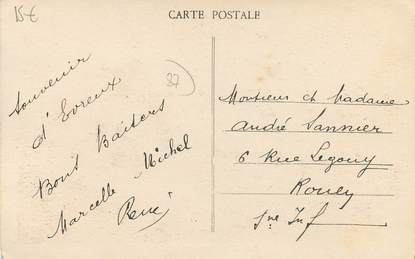 15€
CARTE POSTALE
87
Souvenir
d'Evreux
Bons Baisers
Marcelle Michel
René
Monsieur et Madame
André Lannier
6 Rue Legouy
Rouen
Sne Inf